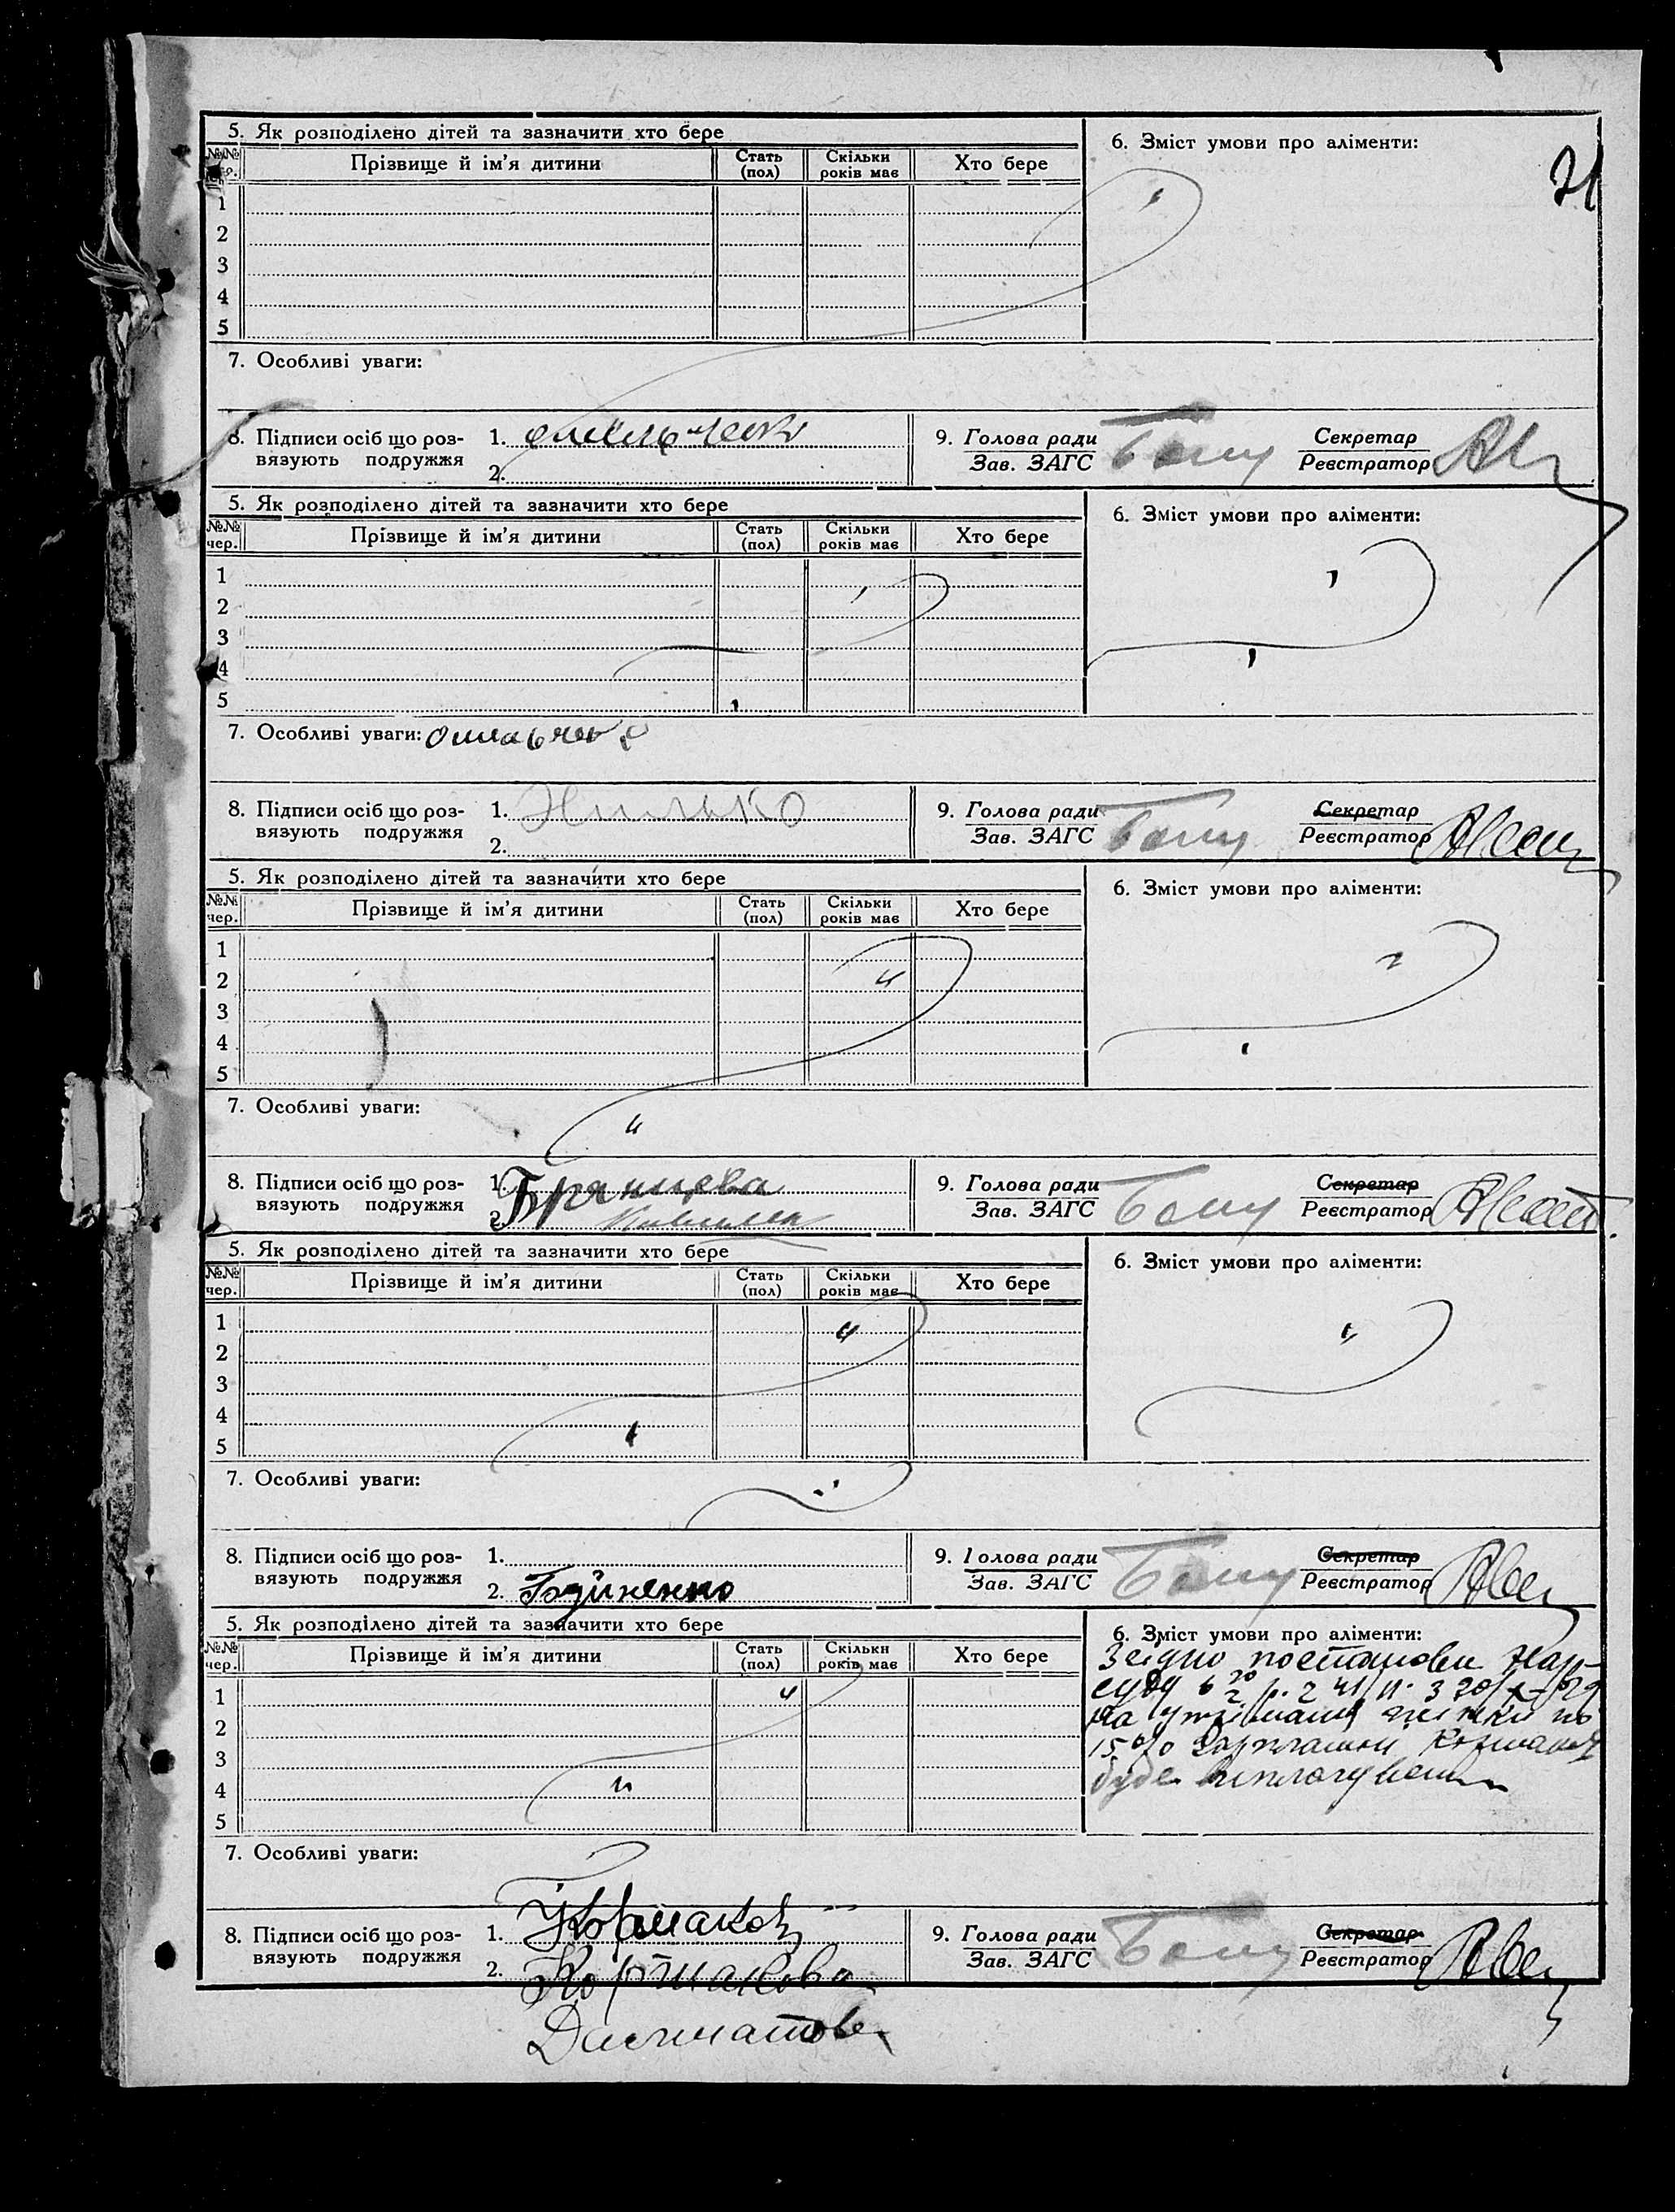 21
5. Як розподілено дітей та зазначити хто бере
6. Зміст умови про аліменти:
№№ чер. Прізвище й ім'я дитини Стать (пол) Скільки років має Хто бере
1
2
3
4
5
7. Особливі уваги:
8. Підписи осіб що роз-
вязують подружжя
1.
2.
9. Голова ради
Зав. ЗАГС
Секретар
Реєстратор
5. Як розподілено дітей та зазначити хто бере
6. Зміст умови про аліменти:
№№ чер. Прізвище й ім'я дитини Стать (пол) Скільки років має Хто бере
1
2
3
4
5
7. Особливі уваги:
8. Підписи осіб що роз-
вязують подружжя
1.
2.
9. Голова ради
Зав. ЗАГС
Секретар
Реєстратор
5. Як розподілено дітей та зазначити хто бере
6. Зміст умови про аліменти:
№№ чер. Прізвище й ім'я дитини Стать (пол) Скільки років має Хто бере
1
2
3
4
5
7. Особливі уваги:
8. Підписи осіб що роз-
вязують подружжя
1. Брянцева
2.
9. Голова ради
Зав. ЗАГС
Секретар
Реєстратор
5. Як розподілено дітей та зазначити хто бере
6. Зміст умови про аліменти:
№№ чер. Прізвище й ім'я дитини Стать (пол) Скільки років має Хто бере
1
2
3
4
5
7. Особливі уваги:
8. Підписи осіб що роз-
вязують подружжя
1.
2. Годиненко
9. Голова ради
Зав. ЗАГС
Секретар
Реєстратор
5. Як розподілено дітей та зазначити хто бере
6. Зміст умови про аліменти:
Згідно постанови Нар-
суду
на утримання
15%
буде виплачувати
№№ чер. Прізвище й ім'я дитини Стать (пол) Скільки років має Хто бере
1
2
3
4
5
7. Особливі уваги:
8. Підписи осіб що роз-
вязують подружжя
1. Коршаков
2. Коршакова
Далматова
9. Голова ради
Зав. ЗАГС
Секретар
Реєстратор